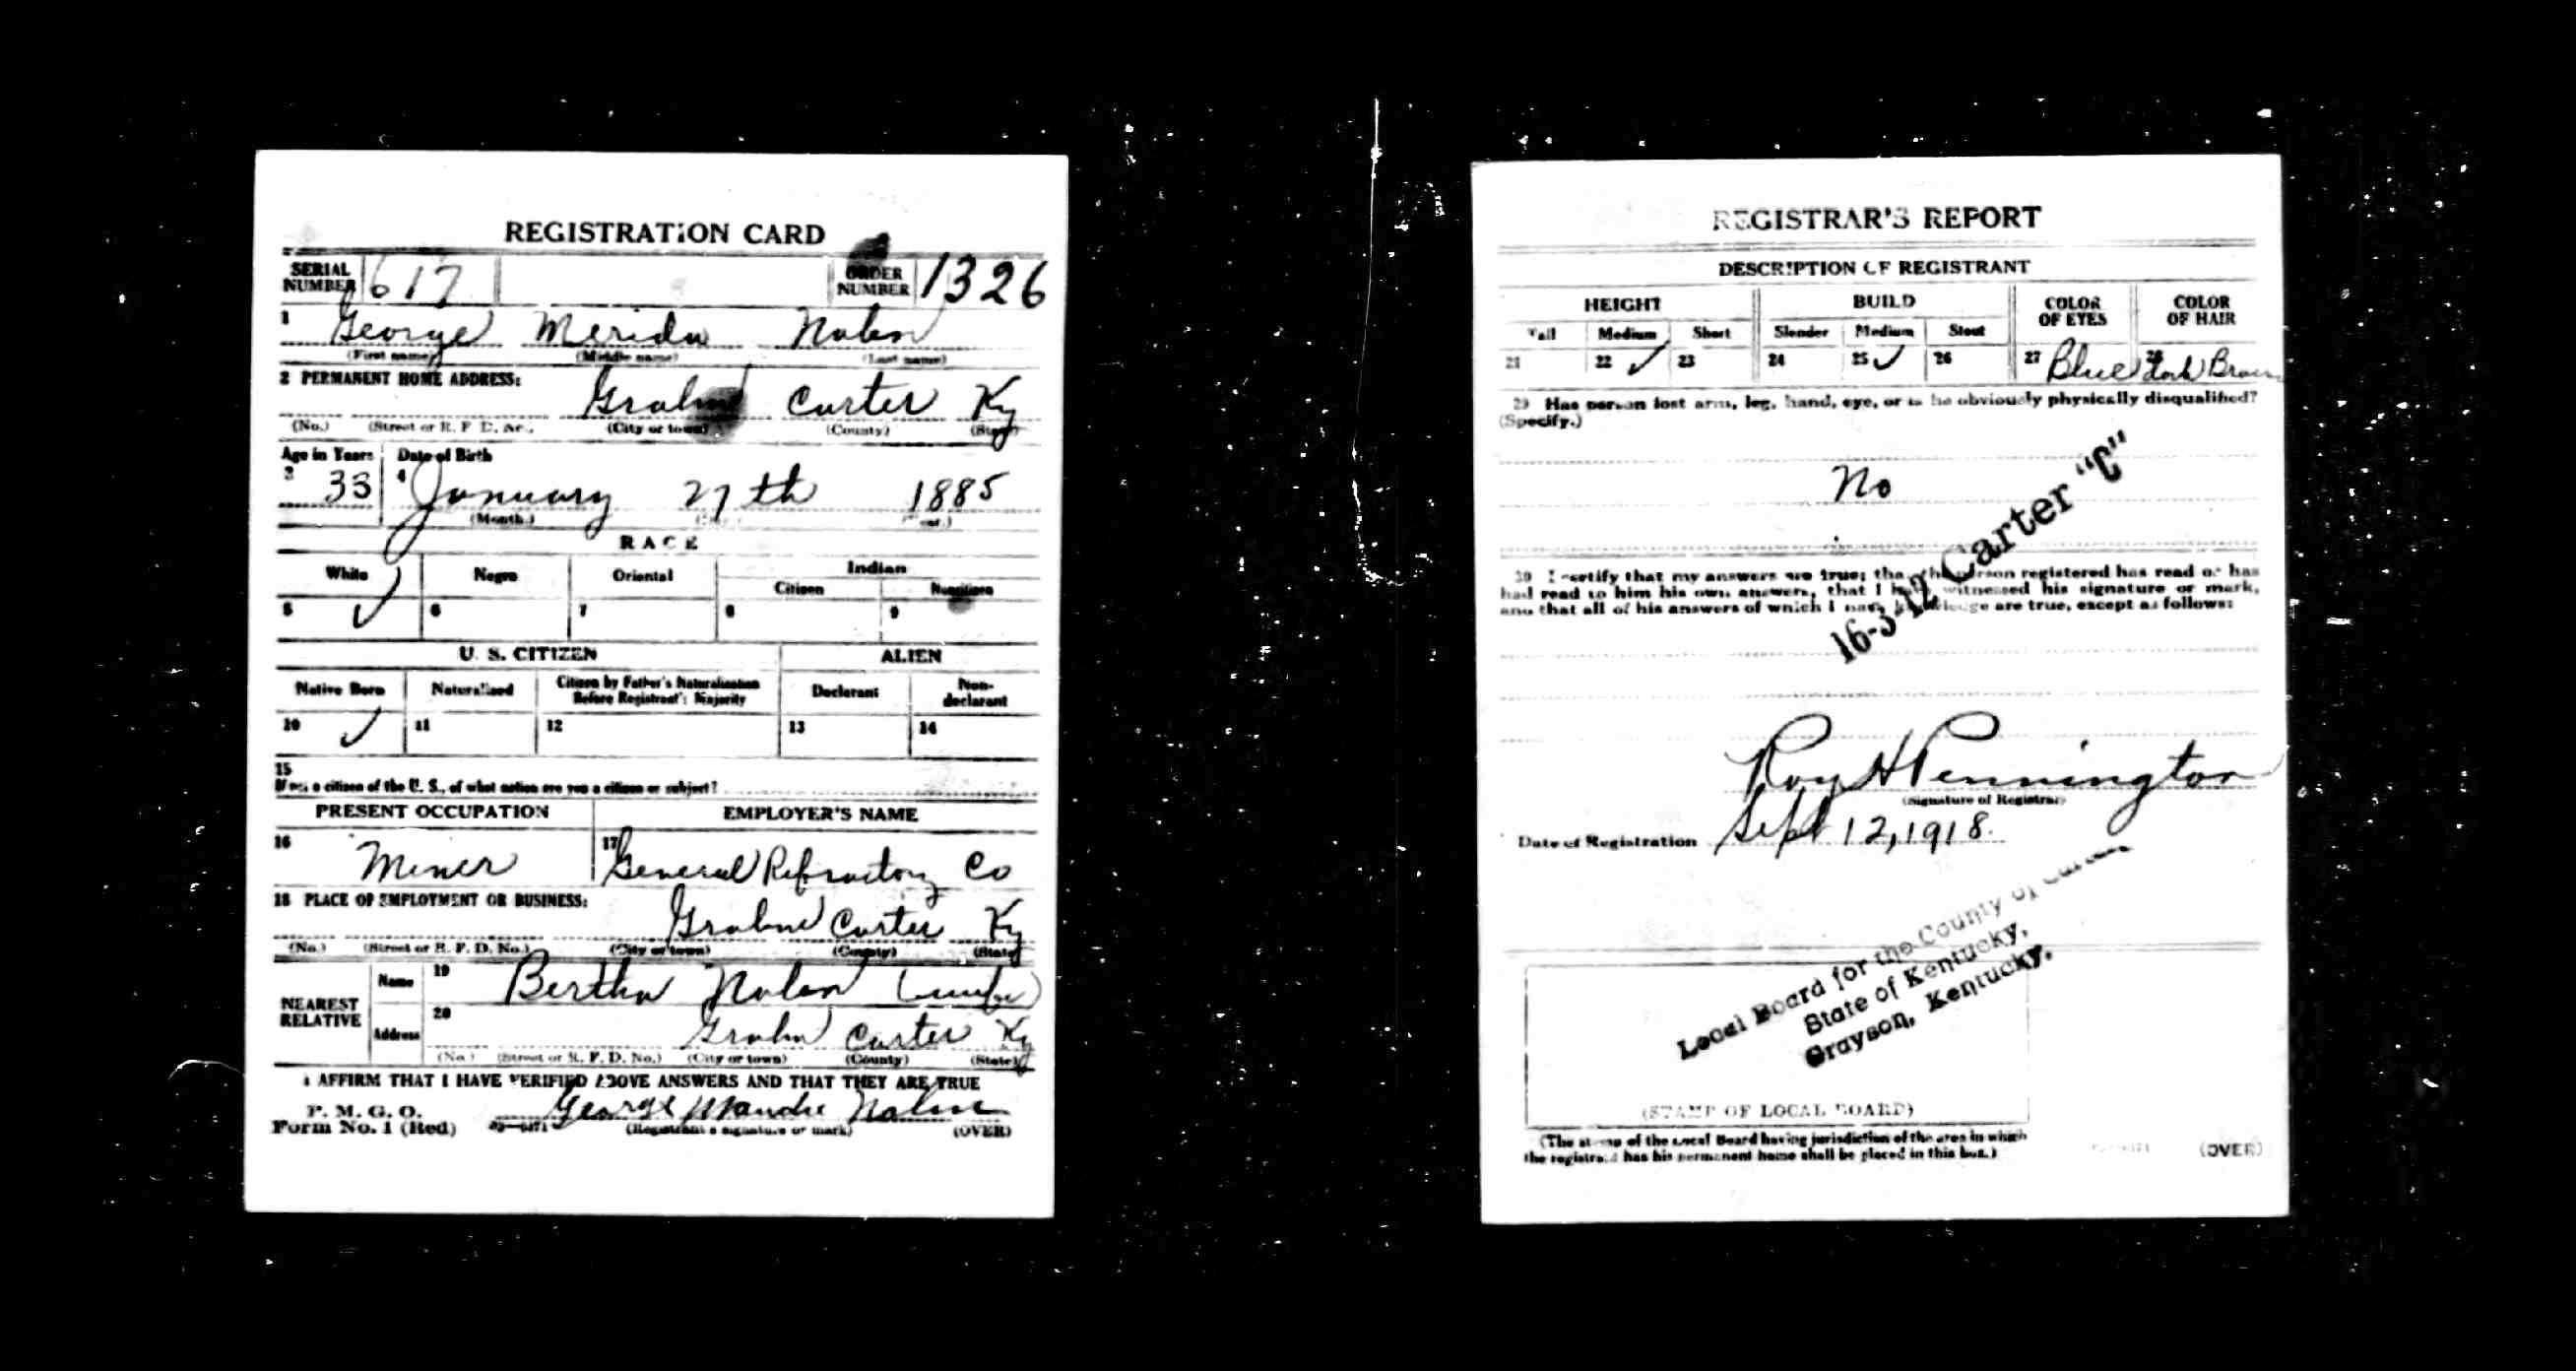 REGISTRATION CARD
SERIAL NUMBER 617 ORDER NUMBER 1326
1 George Merida Nolen
(First name) (Middle name) (Last name)
2 PERMANENT HOME ADDRESS:
Grahn Carter Ky
(No.) (Street or R. F. D. No.) (City or town) (County) (State)
Age in Years Date of Birth
3 33 4 January 27th 1885
(Month.) (Day.) (Year.)
RACE
White Negro Oriental Indian
Citizen Noncitizen
5 ✓ 6 7 8 9
U. S. CITIZEN ALIEN
Native Born Naturalized Citizen by Father's Naturalization Before Registrant's Majority Declarant Non-declarant
10 ✓ 11 12 13 14
15
If not a citizen of the U. S., of what nation are you a citizen or subject?
PRESENT OCCUPATION EMPLOYER'S NAME
16 Miner 17 General Refractory Co
18 PLACE OF EMPLOYMENT OR BUSINESS:
Grahn Carter Ky
(No.) (Street or R. F. D. No.) (City or town) (County) (State)
NEAREST RELATIVE Name 19 Bertha Nolen (wife)
Address 20 Grahn Carter Ky
(No.) (Street or R. F. D. No.) (City or town) (County) (State)
I AFFIRM THAT I HAVE VERIFIED ABOVE ANSWERS AND THAT THEY ARE TRUE
P. M. G. O.
Form No. 1 (Red) George Nolen
(Registrant's signature or mark) (OVER)
REGISTRAR'S REPORT
DESCRIPTION OF REGISTRANT
HEIGHT BUILD COLOR OF EYES COLOR OF HAIR
Tall Medium Short Slender Medium Stout
21 22 ✓ 23 24 25 ✓ 26 27 Blue 28 dark Brown
29 Has person lost arm, leg, hand, eye, or is he obviously physically disqualified?
(Specify.)
No
16-3-12 Carter "C"
30 I certify that my answers are true; that the person registered has read or has
had read to him his own answers, that I have witnessed his signature or mark,
and that all of his answers of which I have knowledge are true, except as follows:
Roy H Pennington
(Signature of Registrar)
Date of Registration Sept 12, 1918.
Local Board for the County of Carter,
State of Kentucky,
Grayson, Kentucky.
(STAMP OF LOCAL BOARD)
(The stamp of the Local Board having jurisdiction of the area in which
the registrant has his permanent home shall be placed in this box.)
(OVER)